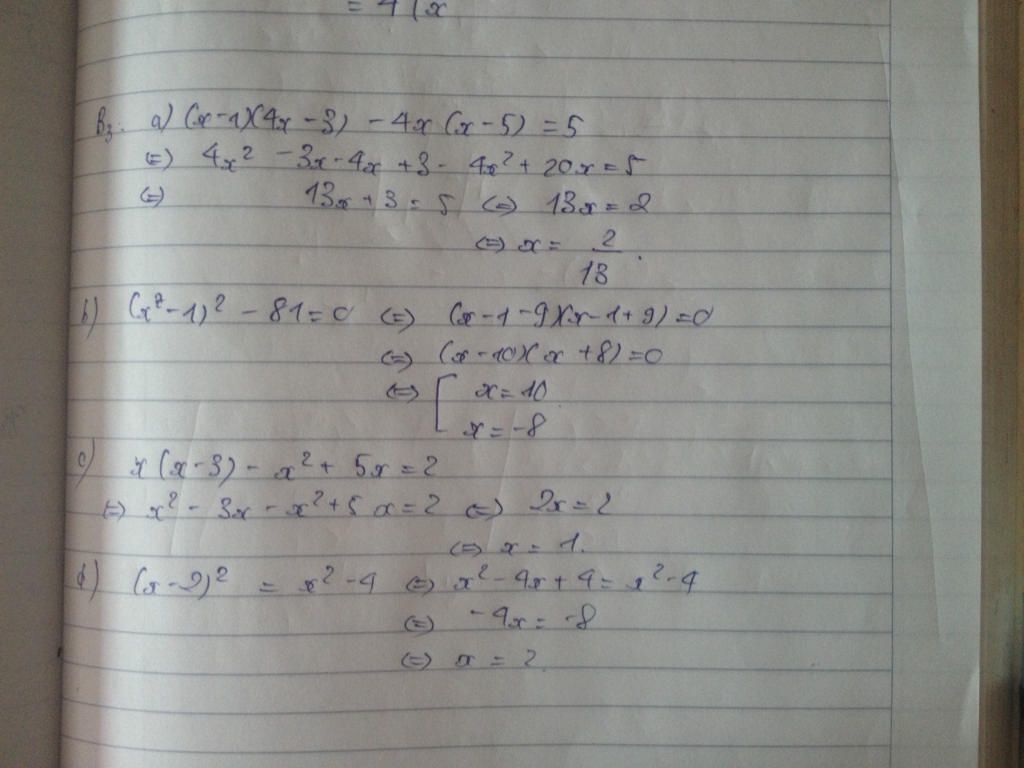 = 4 (x
B3: a) (x-1)(4x-3) - 4x (x-5) = 5
(=) 4x² - 3x - 4x + 3 - 4x² + 20x = 5
(=) 13x + 3 = 5 (=) 13x = 2
(=) x = 2/13.
b) (x² - 1)² - 81 = 0 (=) (x-1-9)(x-1+9) = 0
(=) (x-10)(x+8) = 0
(=) [ x = 10
x = -8
c) x (x-3) - x² + 5x = 2
(=) x² - 3x - x² + 5x = 2 (=) 2x = 2
(=) x = 1.
d) (x-2)² = x² - 4 (=) x² - 4x + 4 = x² - 4
(=) -4x = -8
(=) x = 2.